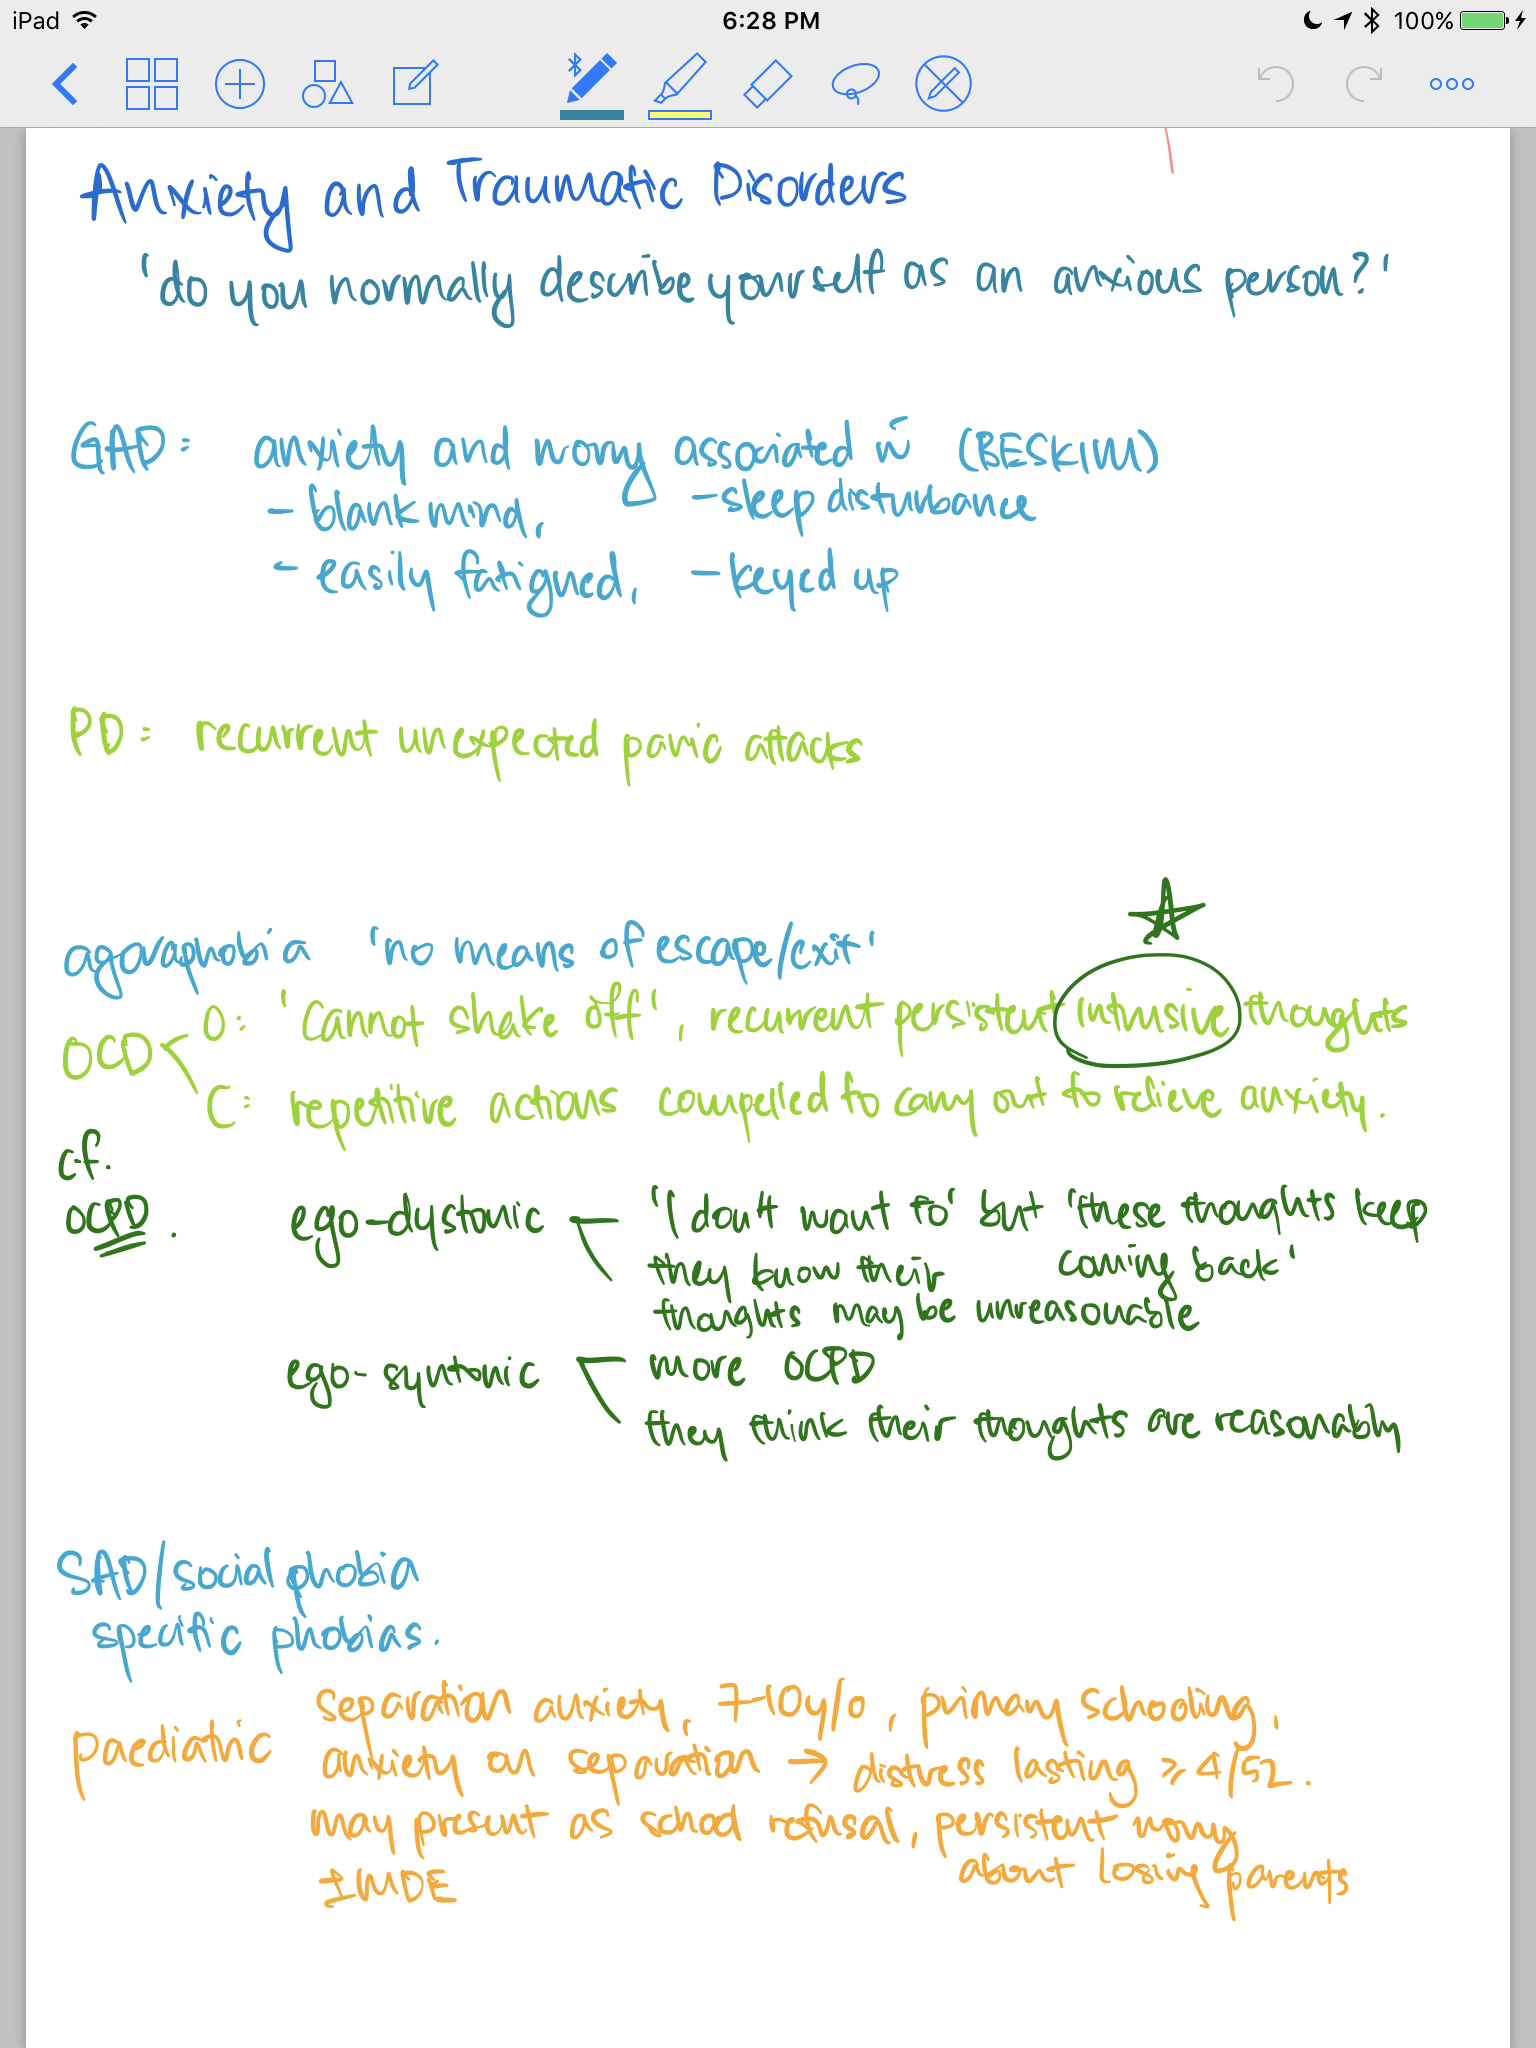 iPad 6:28 PM 100%
Anxiety and Traumatic Disorders
'do you normally describe yourself as an anxious person?'
GAD: anxiety and worry associated w̄ (BESKIM)
- blank mind, - sleep disturbance
- easily fatigued, - keyed up
PD: recurrent unexpected panic attacks
agoraphobia 'no means of escape/exit'
OCD O: 'Cannot shake off', recurrent persistent intrusive thoughts
C: repetitive actions compelled to carry out to relieve anxiety.
c.f.
OCPD. ego-dystonic 'I don't want to' but 'these thoughts keep
they know their coming back'
thoughts may be unreasonable
ego-syntonic more OCPD
they think their thoughts are reasonably
SAD/social phobia
specific phobias.
paediatric separation anxiety, 7-10y/o, primary schooling,
anxiety on separation → distress lasting ≥ 4/52.
may present as school refusal, persistent worry
about losing parents
±MDE